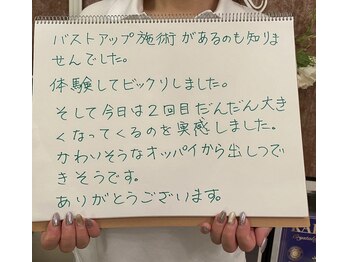 バストアップ施術があるのも知りま
せんでした。
体験してビックりしました。
そして今日は2回目だんだん大き
くなってくるのを実感しました。
かわいそうなオッパイから出しつで
きそうです。
ありがとうございます。